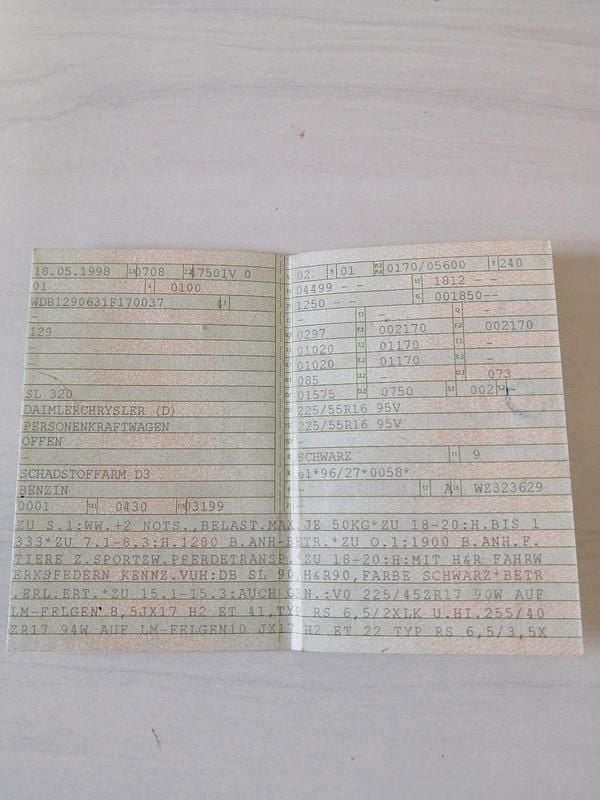 18.05.1998 0708 47501V 0
01 0100
WDB1290631F170037
-
129
-
SL 320
DAIMLERCHRYSLER (D)
PERSONENKRAFTWAGEN
OFFEN
SCHADSTOFFARM D3
BENZIN
0001 0430 03199
02 01 0170/05600 240
04499 - - 1812 -
1250 -- 001850--
- - -
0297 002170 002170
01020 01170 -
01020 01170 -
085 - 073
01575 0750 002 -
225/55R16 95V
225/55R16 95V
SCHWARZ 9
e1*96/27*0058*
- A WZ323629
ZU S.1:WW.+2 NOTS.,BELAST.MAX.JE 50KG*ZU 18-20:H.BIS 1
333*ZU 7.1-8.3:H.1280 B.ANH-BETR.*ZU O.1:1900 B.ANH.F.
TIERE Z.SPORTZW.PFERDETRANSP*ZU 18-20:H:MIT H&R FAHRW
ERKSFEDERN KENNZ.VUH:DB SL 90,H&R90,FARBE SCHWARZ*BETR
.ERL.ERT.*ZU 15.1-15.3:AUCH GEN.:VO 225/45ZR17 90W AUF
LM-FELGEN 8,5JX17 H2 ET 41,TYP RS 6,5/2XLK U.HI.255/40
ZR17 94W AUF LM-FELGEN10 JX17 H2 ET 22 TYP RS 6,5/3,5X